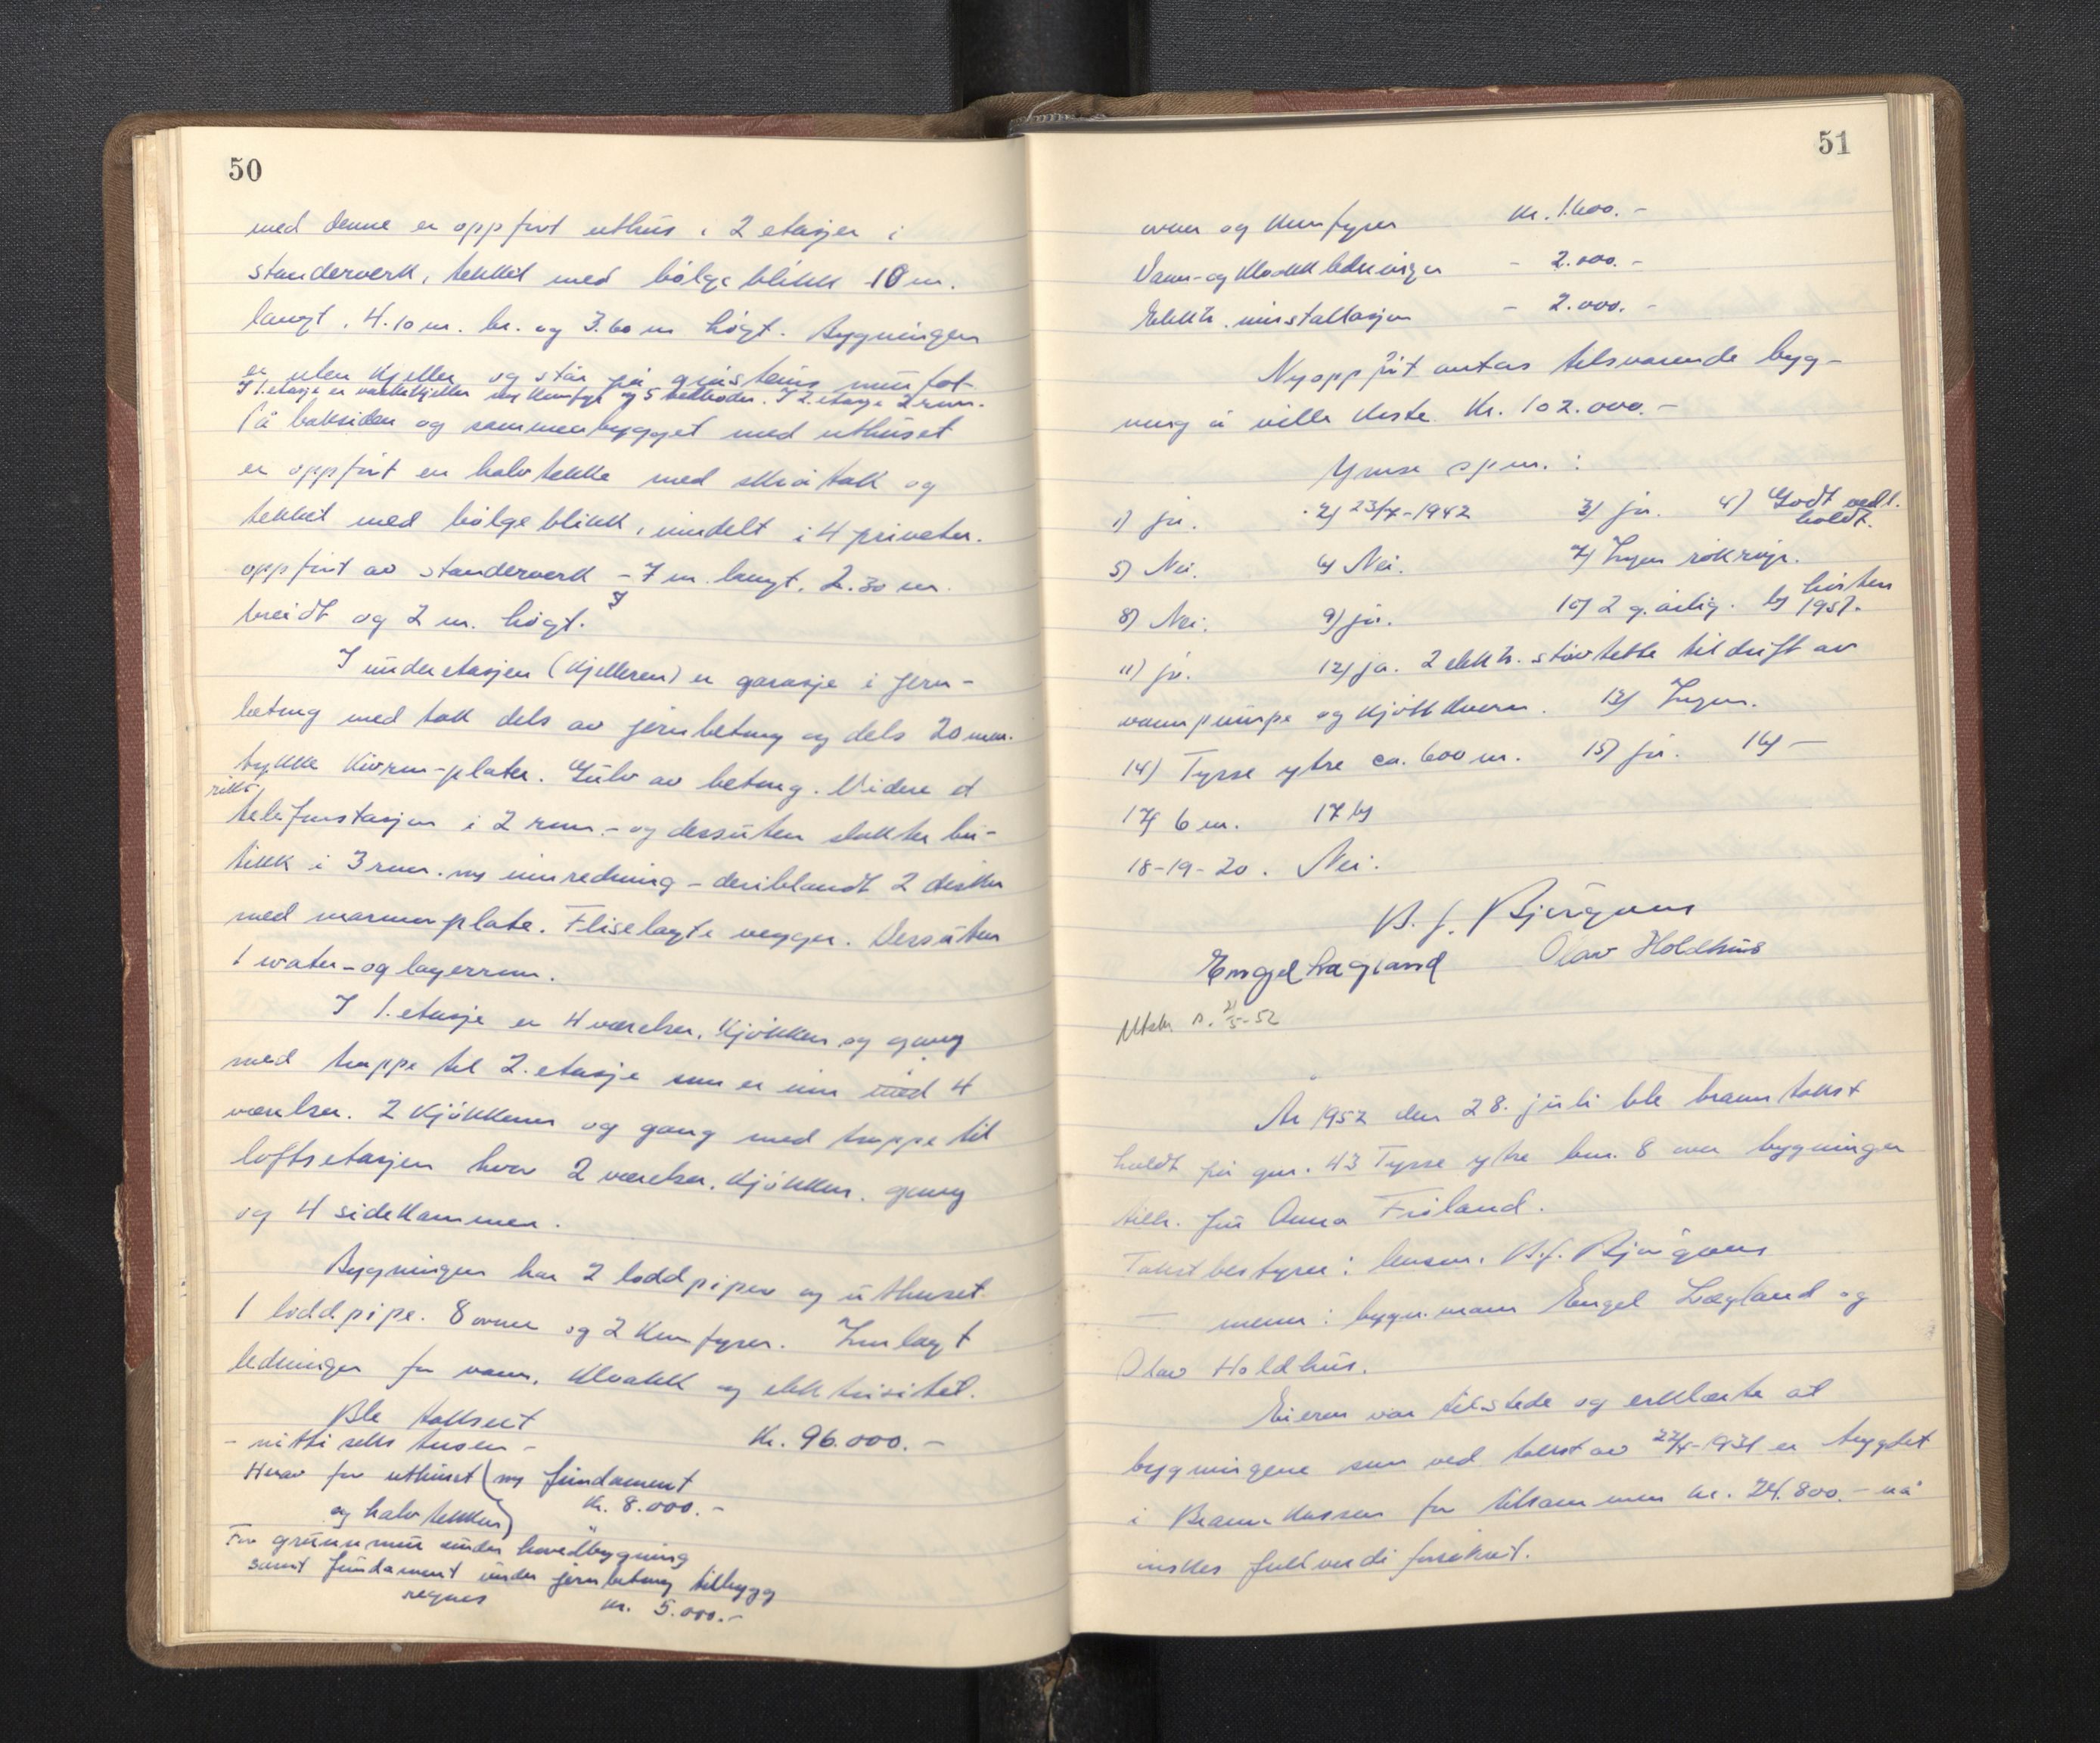 50
med denne er oppført uthus i 2 etasjer i
standerverk, tekket med bølgeblikk 10 m.
langt, 4.10 m. br. og 3.60 m høgt. Bygningen
er uten kjeller og står på gråsteins mur tot
I 1. etasje er vaskekjeller og komfyr og 5 vedboder. I 2. etasje 2 rum.
På baksiden og sammenbygget med uthuset
er oppført en halvtekke med skråtak og
tekket med bølgeblikk, inndelt i 4 privater.
oppført av standerverk - 7 m. langt, 2.30 m.
breidt og 2 m. høgt.
I underetasjen (kjelleren) er garasje i jern-
betong med tak dels av jernbetong og dels 20 mm.
tykke plater. Gulv av betong. Videre et
riks
telefonstasjon i 2 rum. - og dessuten slakter bu-
tikk i 3 rum. ny innredning - deriblandt 2 disker
med marmorplate. Fliselagte vegger. Dessuten
1 water- og lagerrum.
I 1. etasje er 4 værelser, kjøkken og gang
med trappe til 2. etasje som er inn med 4
værelser. 2 kjøkkener og gang med trappe til
loftsetasjen hvor 2 værelser, kjøkken, gang
og 4 sidekammer.
Bygningen har 2 loddpiper og uthuset
1 loddpipe. 8 ovner og 2 komfyrer. Innlagt
ledninger for vann, kloakk og elektrisitet.
Ble taksert
- nitti seks tusen - Kr. 96.000.-
Herav for uthuset (og fundament
og halvtekken) Kr. 8.000.-
For grunnmur under hovedbygning
samt fundament under jernbetong tilbygg
regnes Kr. 5.000.-
51
ovner og komfyrer Kr. 1.600.-
Vann- og kloakkledninger - 2.000.-
Elektr. innstallasjon - 2.000.-
Nyoppført antas tilsvarende byg-
ning å ville koste Kr. 102.000.-
Ymse spm. :
1) ja. 2) 23/7-1942 3) ja. 4) Godt vedl.
holdt.
5) Nei. 6) Nei. 7) Ingen
8) Nei. 9) ja. 10) 2 g. årlig. b) hösten
1951.
11) ja. 12) ja. 2 elektr. støvtette til drift av
vannpumpe og kjøttkvern. 13) Ingen.
14) Tysse ytre ca. 600 m. 15) ja. 16) -
17) 6 m. 17 b)
18-19-20. Nei.
B. J. Bjørgaas
Engel Lægland Olav Holdhus
Utskr. s. 21/5-52
År 1952 den 28. juli ble branntakst
holdt på gnr. 43 Tysse ytre bnr. 8 over bygninger
tilh. fru Anna Frøland.
Takstbestyrer: lensm. B.J. Bjørgaas
- menn: bygn.mann Engel Lægland og
Olav Holdhus.
Eieren var tilstede og erklærte at
bygningene som ved takst av 22/4-1931 er trygdet
i Brannkassen for tilsammen kr. 24.800.- nå
ønskes fullverdi forsikret.